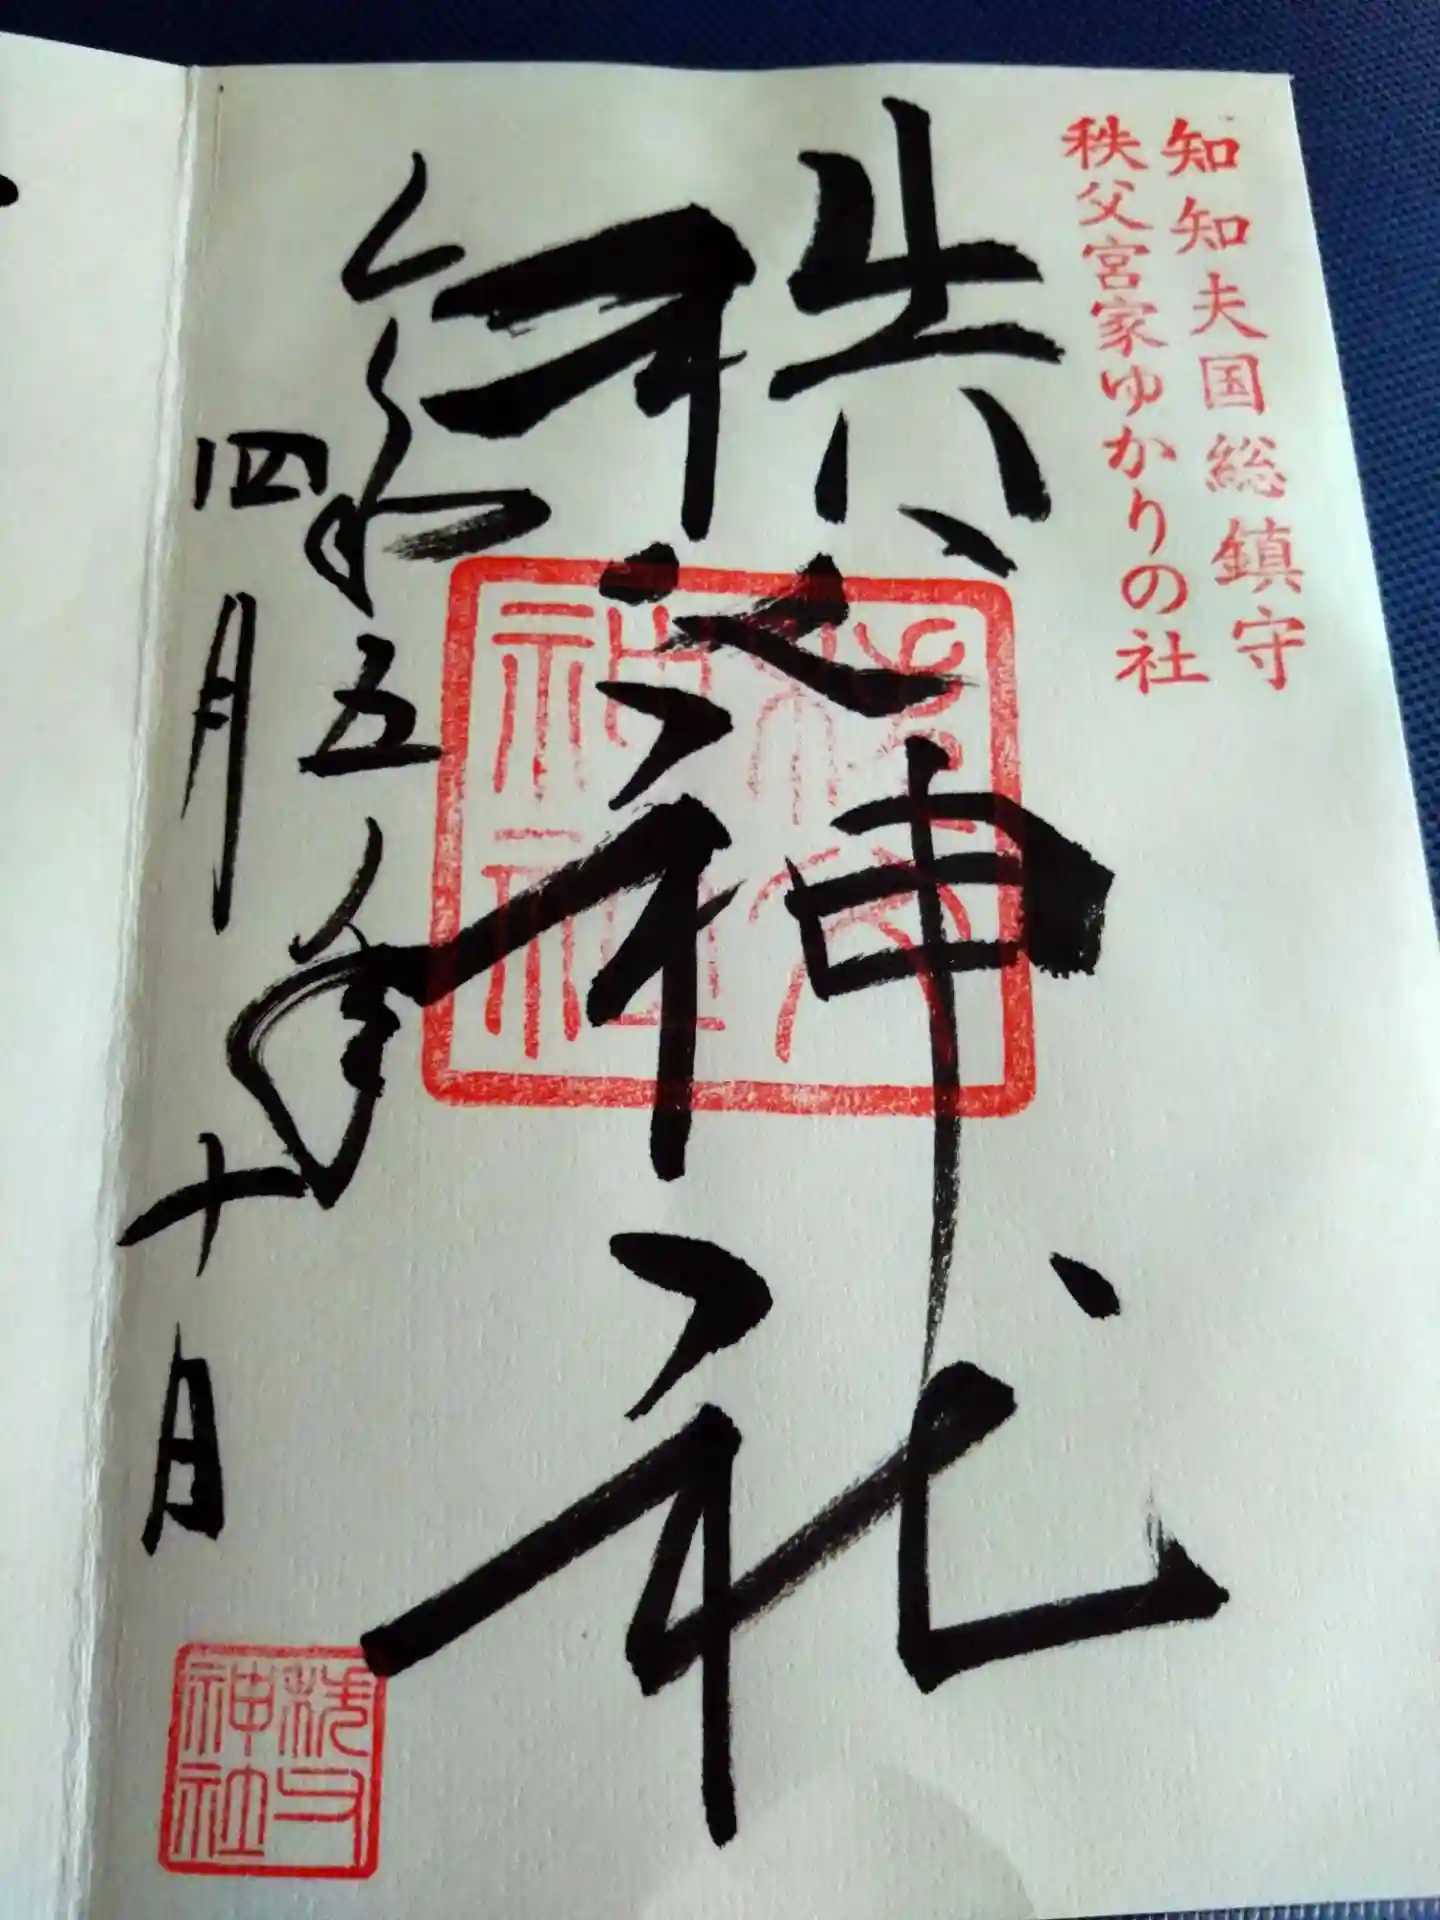 知知夫国総鎮守
秩父宮家ゆかりの社
秩父神社
令和五年
四月十日
秩父神社
秩父神社